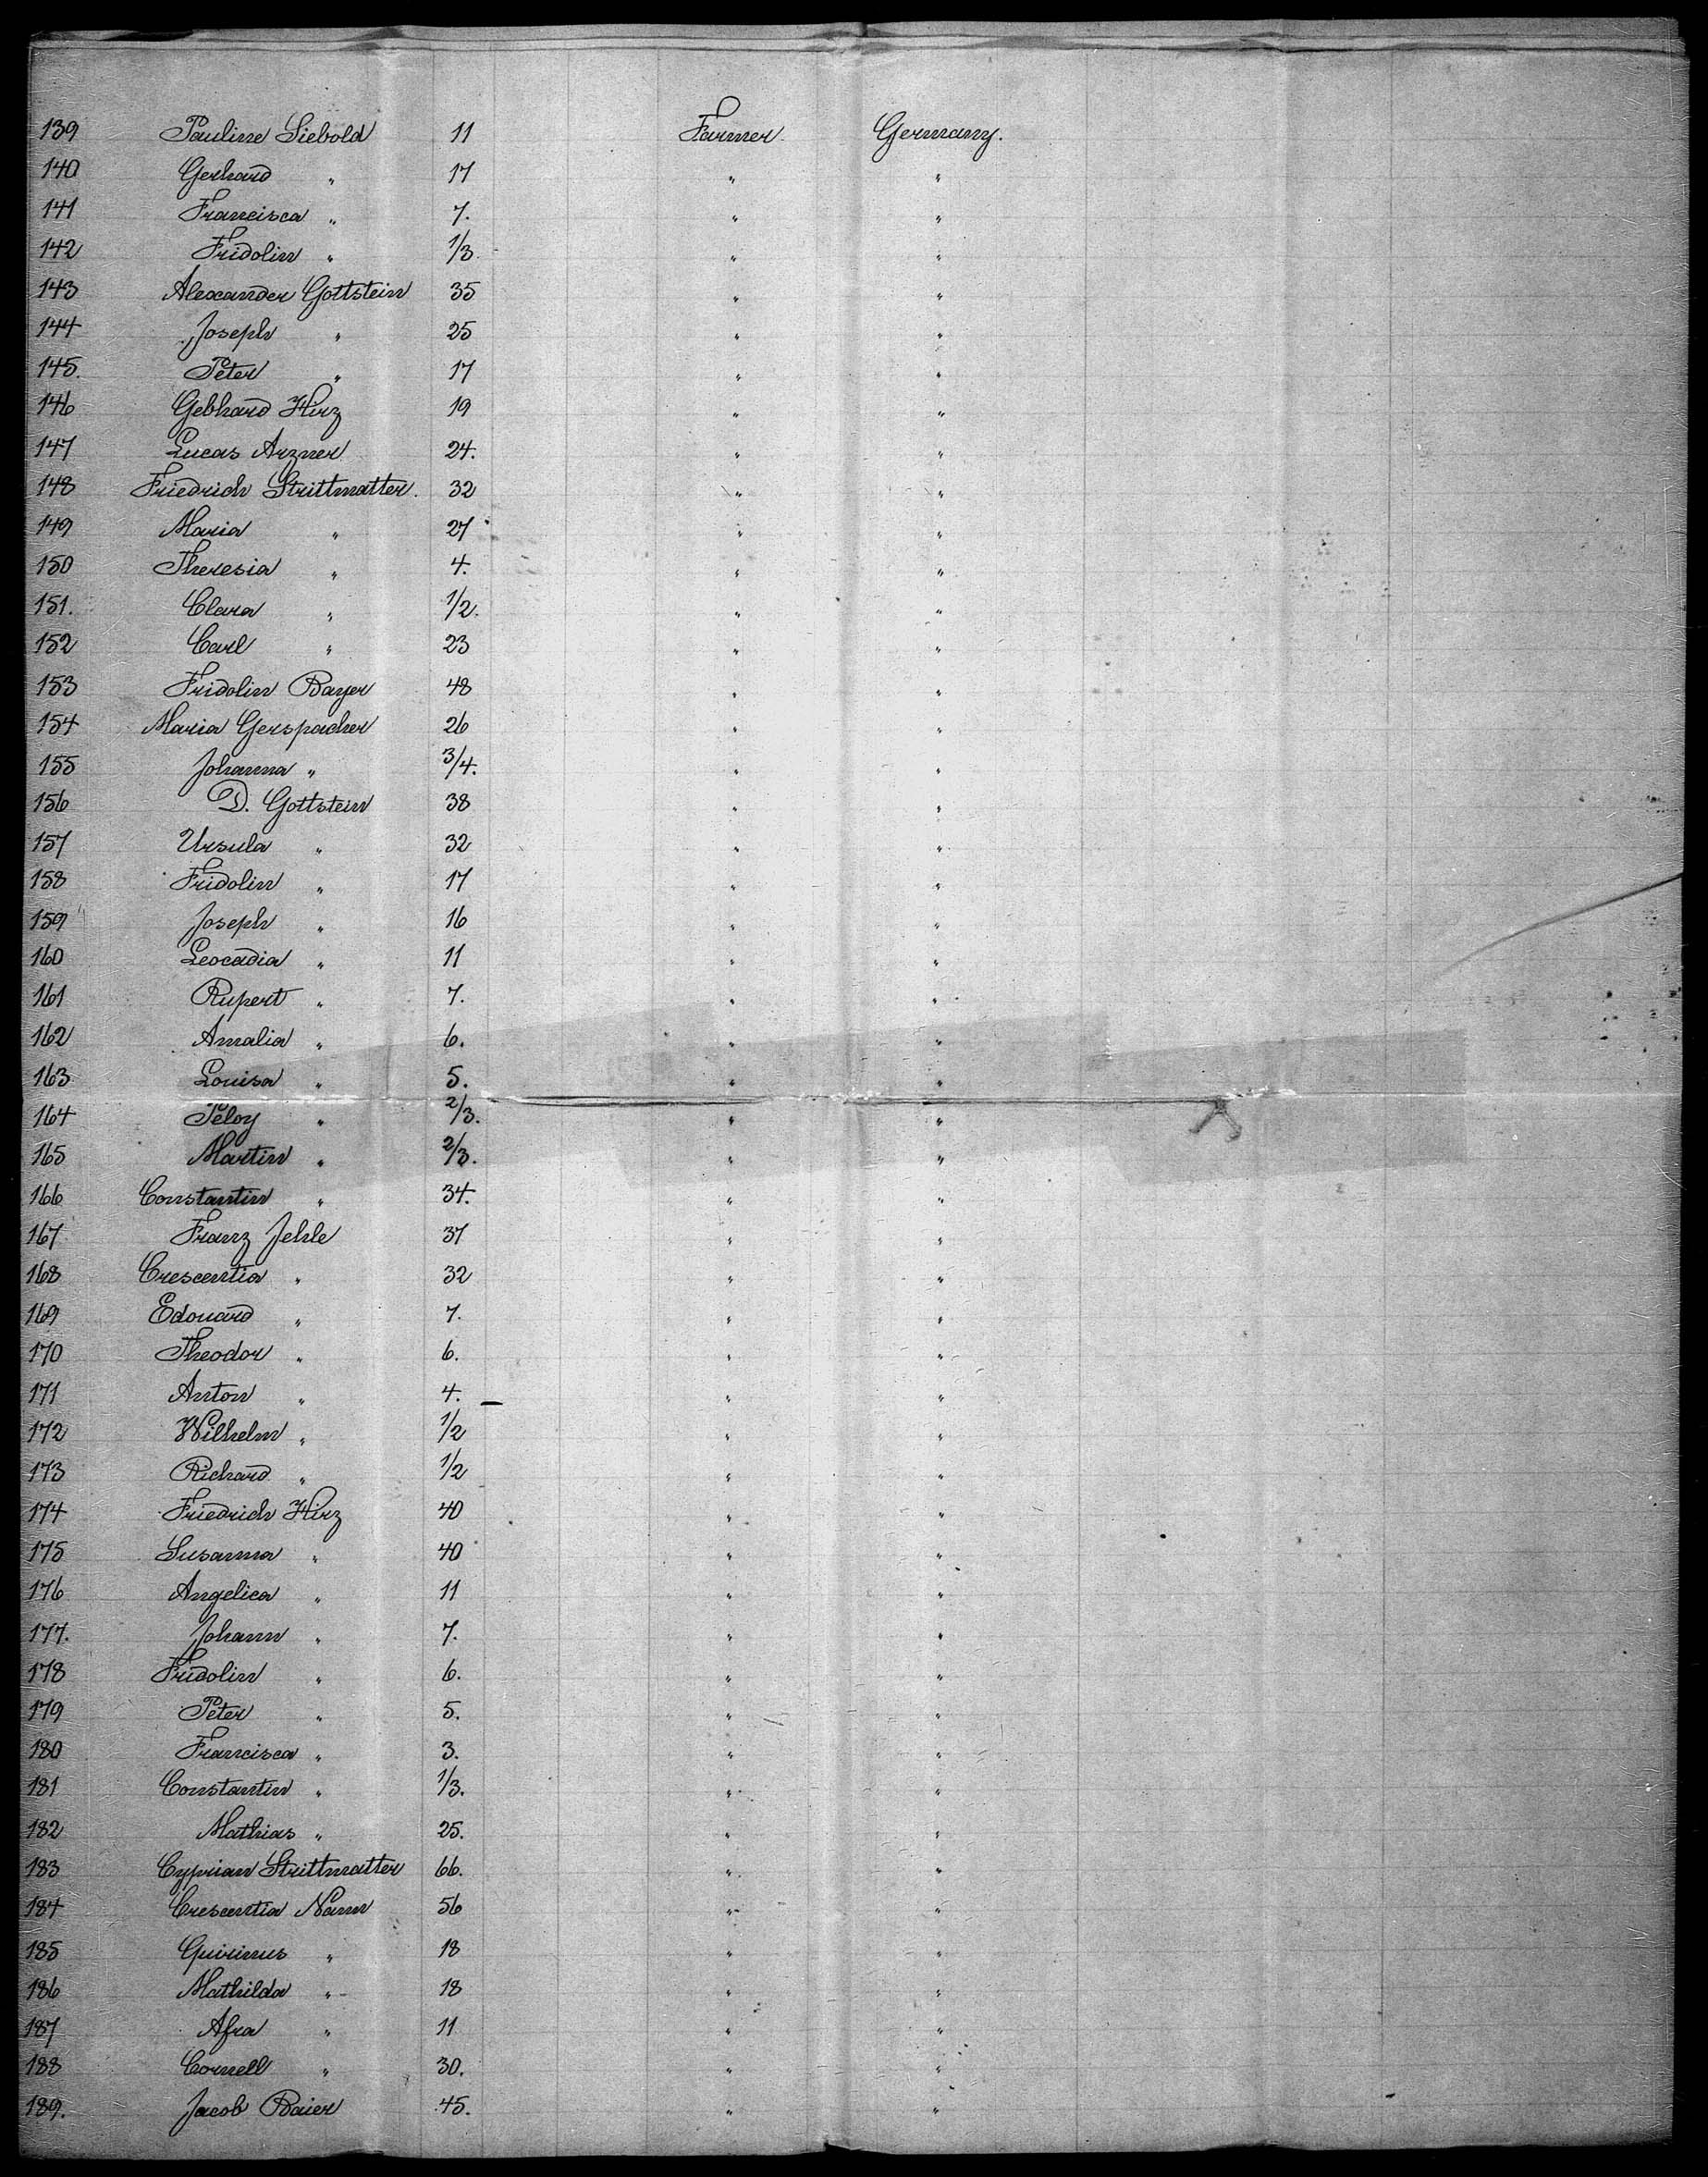 139 Pauline Siebold 11 Farmer Germany.
140 Gerhard " 17 " "
141 Francisca " 7. " "
142 Fridolin " 1/3. " "
143 Alexander Gottstein 35 " "
144 Joseph " 25 " "
145. Peter " 17 " "
146 Gebhard Hirz 19 " "
147 Lucas Arzner 24. " "
148 Friedrich Strittmatter. 32 " "
149 Maria " 27 " "
150 Theresia " 4. " "
151. Clara " 1/2. " "
152 Carl " 23 " "
153 Fridolin Bayer 48 " "
154 Maria Gerspacher 26 " "
155 Johanna " 3/4. " "
156 D. Gottstein 38 " "
157 Ursula " 32 " "
158 Fridolin " 17 " "
159 Joseph " 16 " "
160 Leocadia " 11 " "
161 Rupert " 7. " "
162 Amalia " 6. " "
163 Louisa " 5. " "
164 " 2/3. " "
165 Martin " 2/3. " "
166 Constantin " 34. " "
167 Franz Jehle 37 " "
168 Crescentia " 32 " "
169 Edouard " 7. " "
170 Theodor " 6. " "
171 Anton " 4. " "
172 Wilhelm " 1/2 " "
173 Richard " 1/2 " "
174 Friedrich Hirz 40 " "
175 Susanna " 40 " "
176 Angelica " 11 " "
177. Johann " 7. " "
178 Fridolin " 6. " "
179 Peter " 5. " "
180 Francisca " 3. " "
181 Constantin " 1/3. " "
182 Mathias " 25. " "
183 Cyprian Strittmatter 66. " "
184 Crescentia Nann 56 " "
185 Quirinus " 18 " "
186 Mathilda " 18 " "
187 Afra " 11 " "
188 Cornell " 30. " "
189. Jacob Baier 45. " "